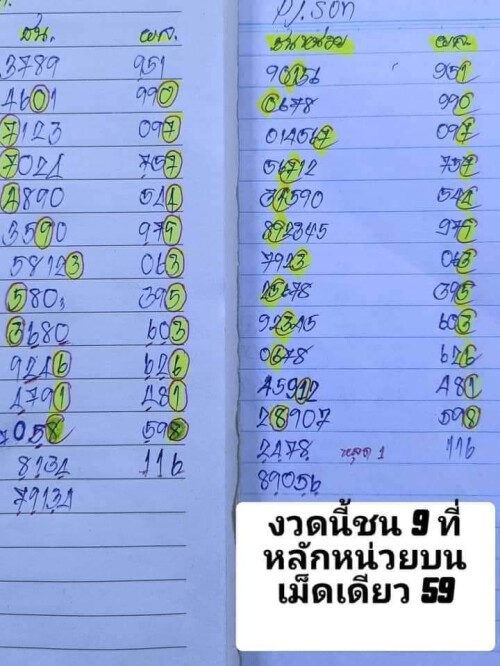 ชน. ผล.
3789 951
4601 990
7123 097
7024 757
4890 544
3590 975
58123 063
5803 395
3680 603
9246 626
4791 481
7058 598
8134 116
79134
PJ.SON
ชนหน่วย ผล
90156 951
0678 990
014567 097
56712 757
34590 544
892345 975
7923 063
25678 395
92345 603
0678 626
45912 481
28907 598
2478 หลุด 1 116
89056
งวดนี้ชน 9 ที่
หลักหน่วยบน
เม็ดเดียว 59